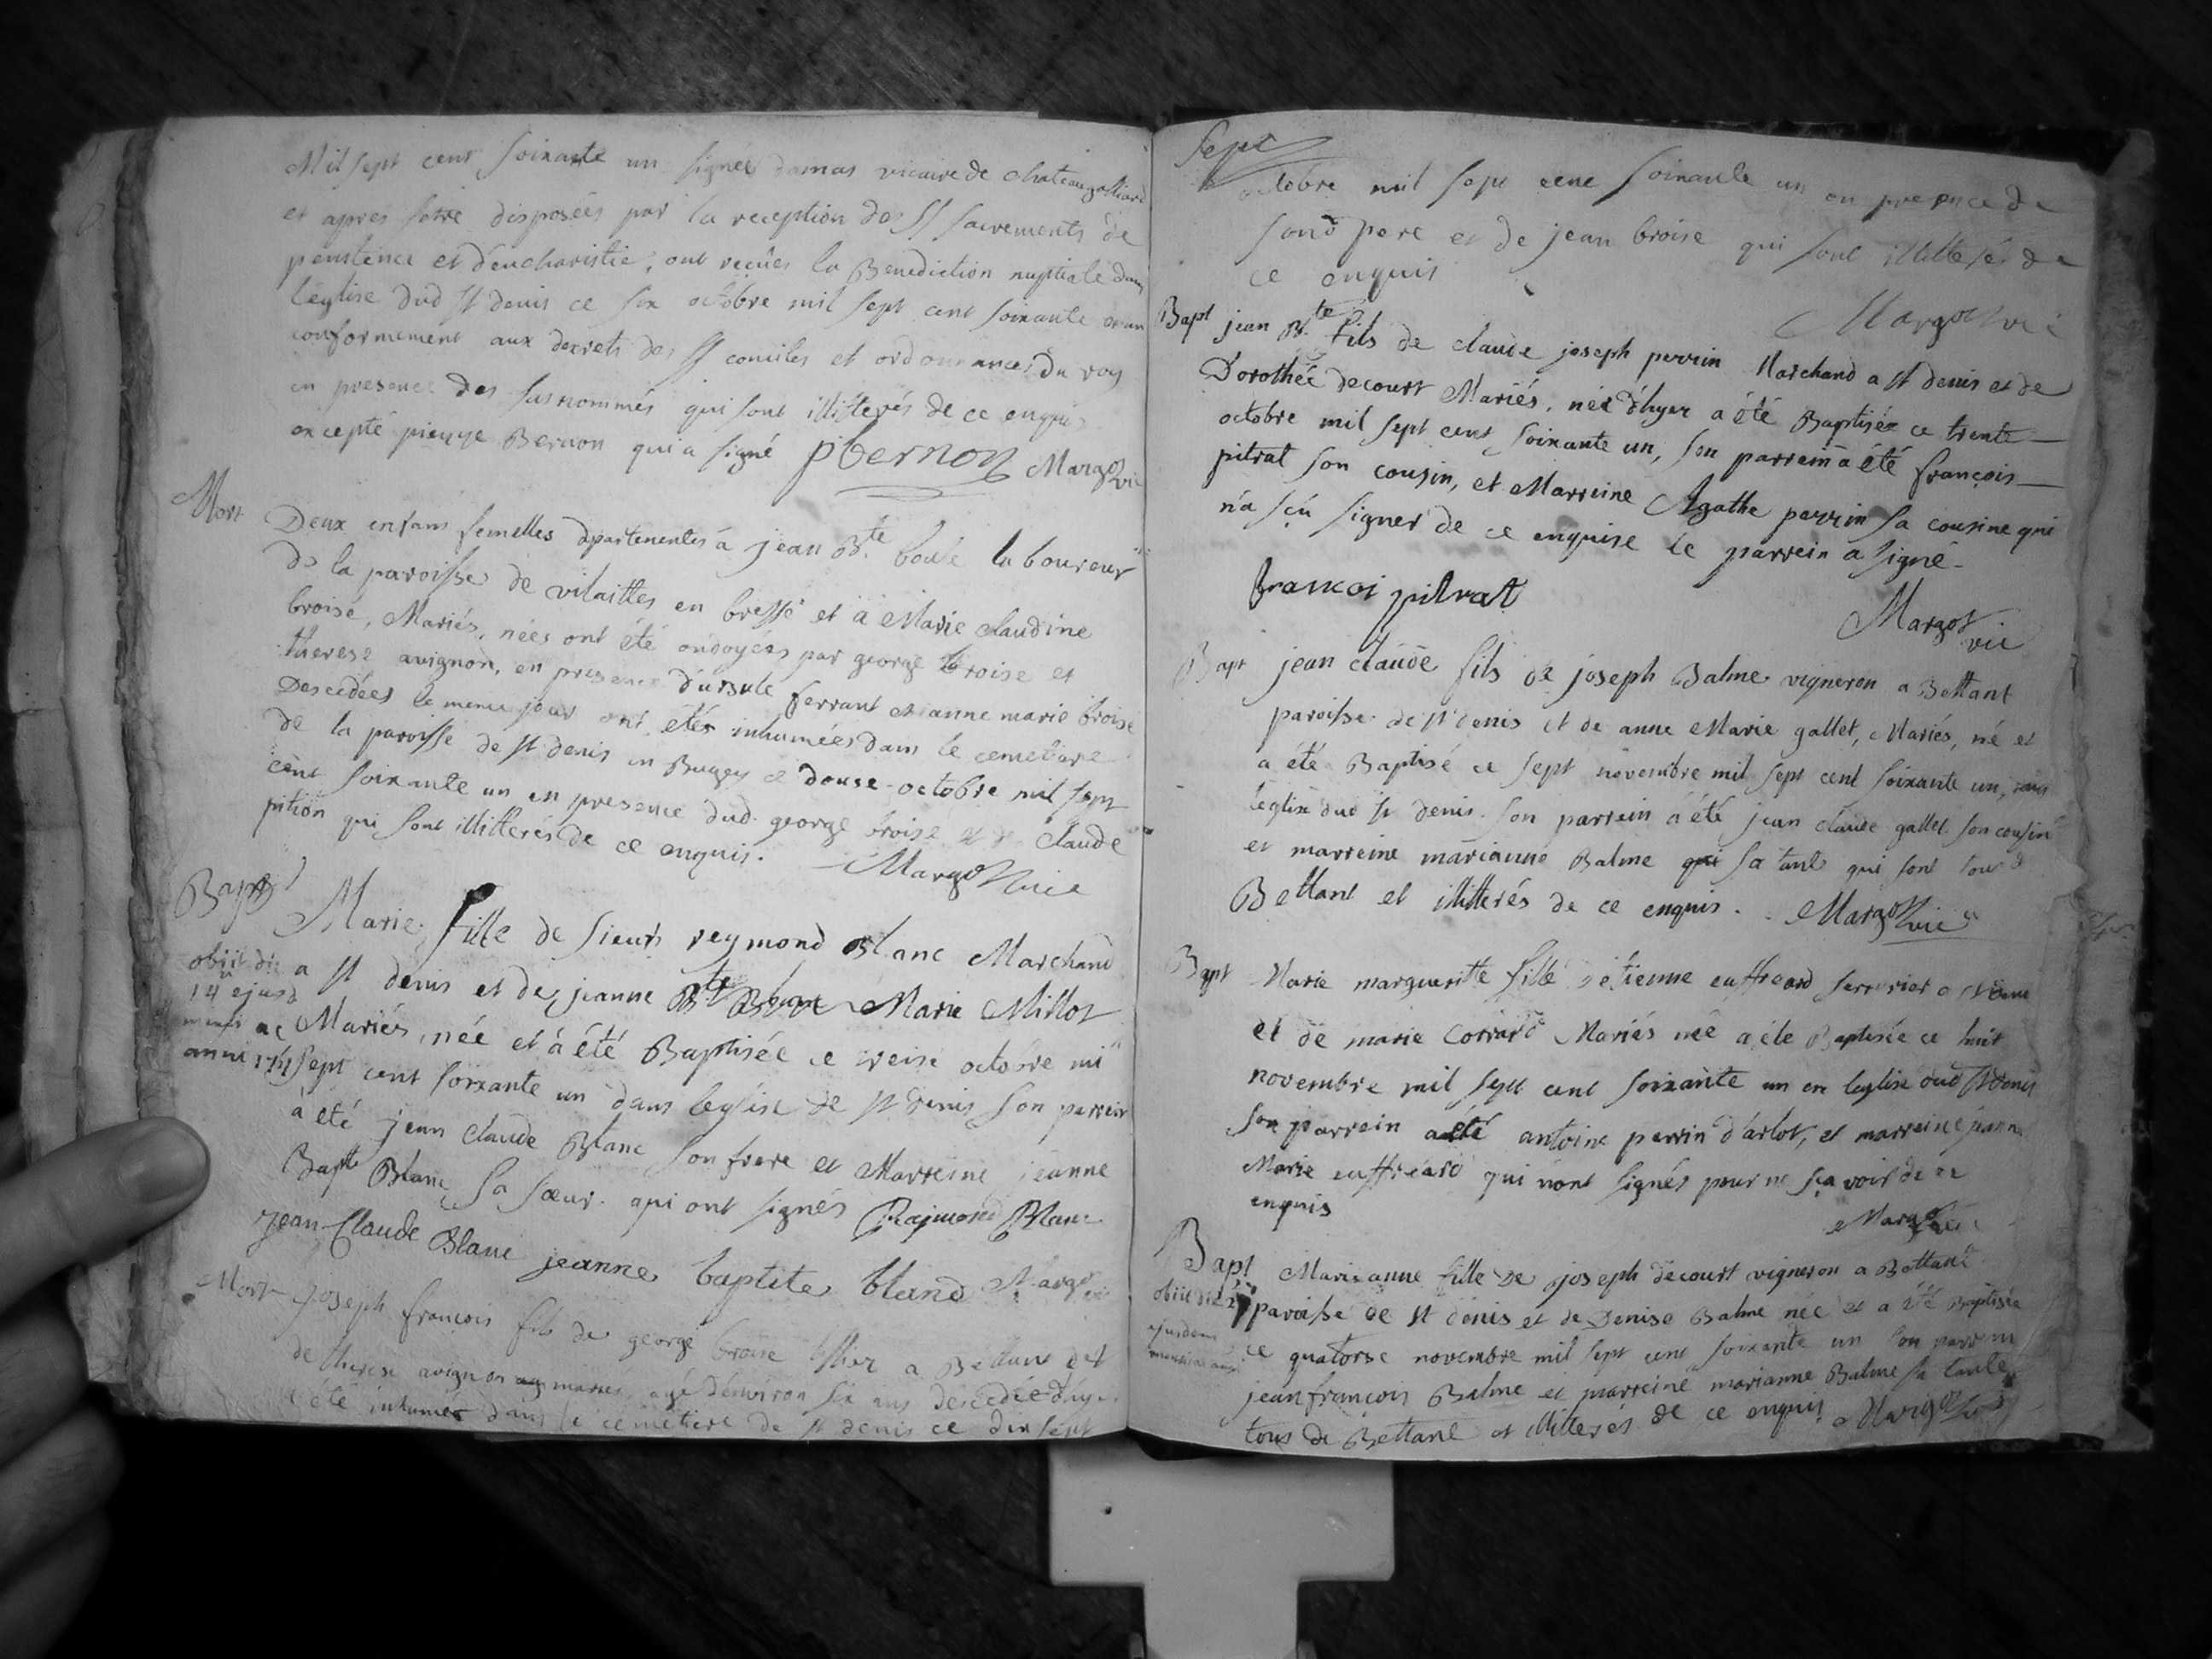 Mil sept cent soixante un signée damas vicaire de chateaugalliard
et aprés sètre disposées par la reception des SS sacrements de
penitence et d'eucharistie, ont reçûes la Benediction nuptiale dans
l'eglise dud st denis ce six octobre mil sept cent soixante et un
conformement aux decrets des SS conciles et ordonnances du roy
en presence des susnommés qui sont illitterés de ce enquis
excepté pierre Bernon qui a signé pbernon Margot vic
Mort
Deux enfans femelles apartenentes à jean Bte laboureur
de la paroisse de vilaittes en bresse et à Marie Claudine
broise, Mariés, nées ont été ondoyées par george broise et
therese avignon, en presence d'ursule ferrant et anne marie broise
Descedées le meme jour ont étés inhumées dans le cemetiere
de la paroisse de st denis en Bugey ce douse octobre mil sept
cent soixante un en presence dud. george broise et de Claude
pition qui sont illitterés de ce enquis. Margot vic
Bapt
Marie fille de sieurs reymond Blanc Marchand
obiit die
14 ejusd
mensis ac
anni 1761
a st denis et de jeanne Bte Blanc Marie Millot
Mariés, née et à été Baptisée ce treise octobre mil
sept cent soixante un dans leglise de st denis son parrein
à été jean claude Blanc son frere et Marreine jeanne
Bapte Blanc sa sœur. qui ont signés Rajmond Blanc
Jean Claude Blanc jeanne baptite bland Margot vic
Mort
joseph françois fils de george broise a Bettant et
de therese avignon mariés, agé d'environ six ans descedée d'hyer
a été inhumés dans le cemetiere de st denis ce dix sept
sept
octobre mil sept cent soixante un en presence de
sond pere et de jean broise qui sont illiterés de
ce enquis
Margot vic
Bapt
jean Bte fils de claude joseph perrin Marchand a st denis et de
Dorothée decourt Mariés, née d'hyer a été Baptisée ce trente
octobre mil sept cent soixante un, son parrein a été françois
pitrat son cousin, et Marreine Agathe perrin sa cousine qui
n'a sçu signer de ce enquise le parrein a signé
francoi pitrat
Margot vic
Bapt
jean claude fils de joseph Balme vigneron a Bettant
paroisse de st denis et de anne Marie gallet, Mariés, né et
a été Baptisé ce sept novembre mil sept cent soixante un, dans
leglise dud st denis. son parrein a été jean claude gallet son cousin
et marreine marianne Balme qui sa tante qui sont tous de
Bettant et illitterés de ce enquis. Margot vic
Bapt
Marie margueritte fille d'etienne euffreard serrurier a st denis
et de marie Corrard Mariés née a éte Baptisée ce huit
novembre mil sept cent soixante un en leglise dud st denis
son parrein a été antoine perrin d'arlot, et marreine jeanne
Marie euffréard qui n'ont signés pour ne sçavoir de ce
enquis
Margot vic
Bapt
Marieanne fille de joseph decourt vigneron a Bettant
obiit die 27
ejusdem
mensis et anni
paroisse de st denis et de Denise Balme née et a été Baptisée
ce quatorse novembre mil sept cent soixante un son parrein
jean françois Balme et marreine marianne Balme sa tante
tous de Bettant et illitterés de ce enquis Margot vic